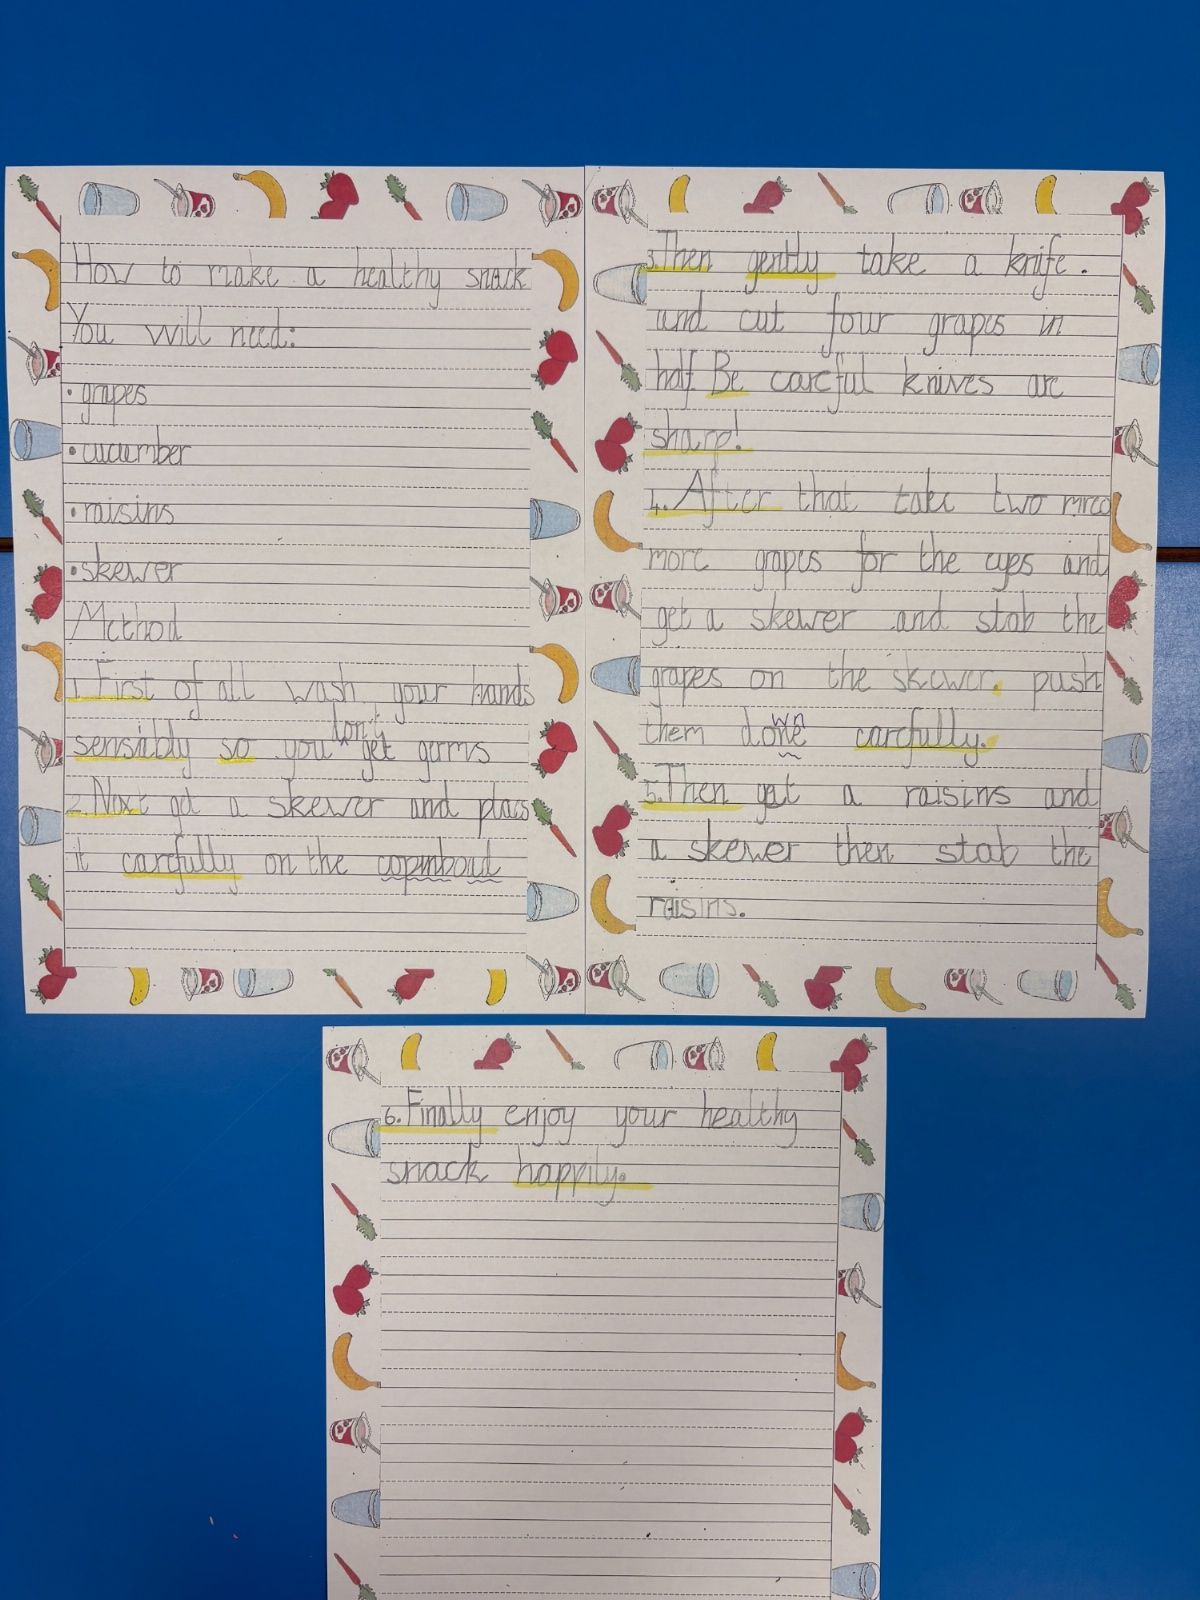 How to make a healthy snack
You will need:
• grapes
• cucumber
• raisins
• skewer
Method
1. First of all wash your hands
don't
sensiably so you ^ get germs
2. Next get a skewer and placs
it carefully on the copinboud
3. Then gently take a knife.
and cut four grapes in
half. Be careful knives are
sharp!
4. After that take two mreo
more grapes for the eyes and
get a skewer and stab the
grapes on the skewer. push
wn
them done carefully.
5. Then get a raisins and
a skewer then stab the
raisins.
6. Finally enjoy your healthy
snack happily.